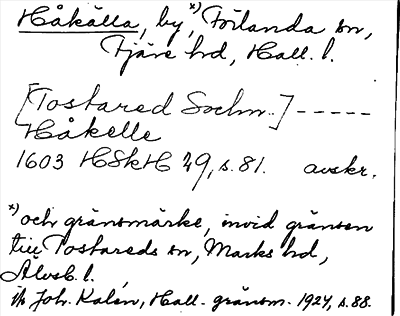 Håkälla, by, x) Förlanda sn,
Fjäre hd, Hall. l.
[Tostared Sochn..] -----
Håkelle
1603 HSkH 29, s. 81. avskr.
x) och gränsmärke, invid gränsen
till Tostareds sn, Marks hd,
Älvsb. l.
Joh. Kalén, Hall. gränsm. 1924, s. 88.